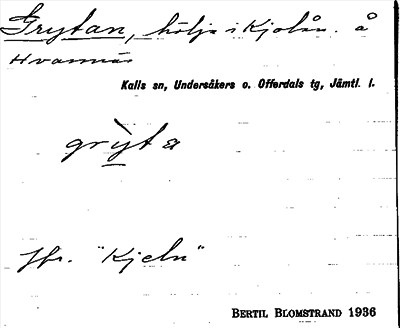 Grytan, hölja i Kjolån. å
Hvarnnäs
Kalls sn, Undersåkers o. Offerdals tg, Jämtl. l.
grỳta
Jfr. "Kjeln"
BERTIL BLOMSTRAND 1936